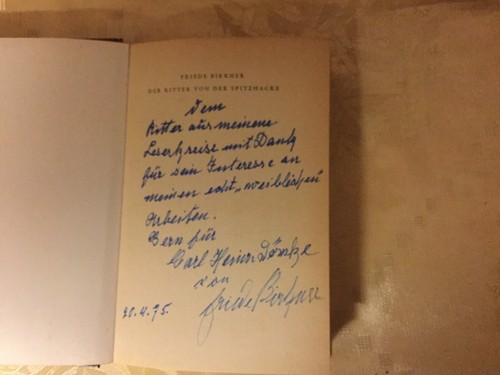 FRIEDE BIRKNER
DIE RITTER VON DER SPITZHACKE
Dem
Ritter aus meinem
Leserkreise mit Dank
für sein Interesse an
meinen echt „weiblichen"
Arbeiten.
Gern für
Carl Heinz
von
Friede Birkner
20.4.75.